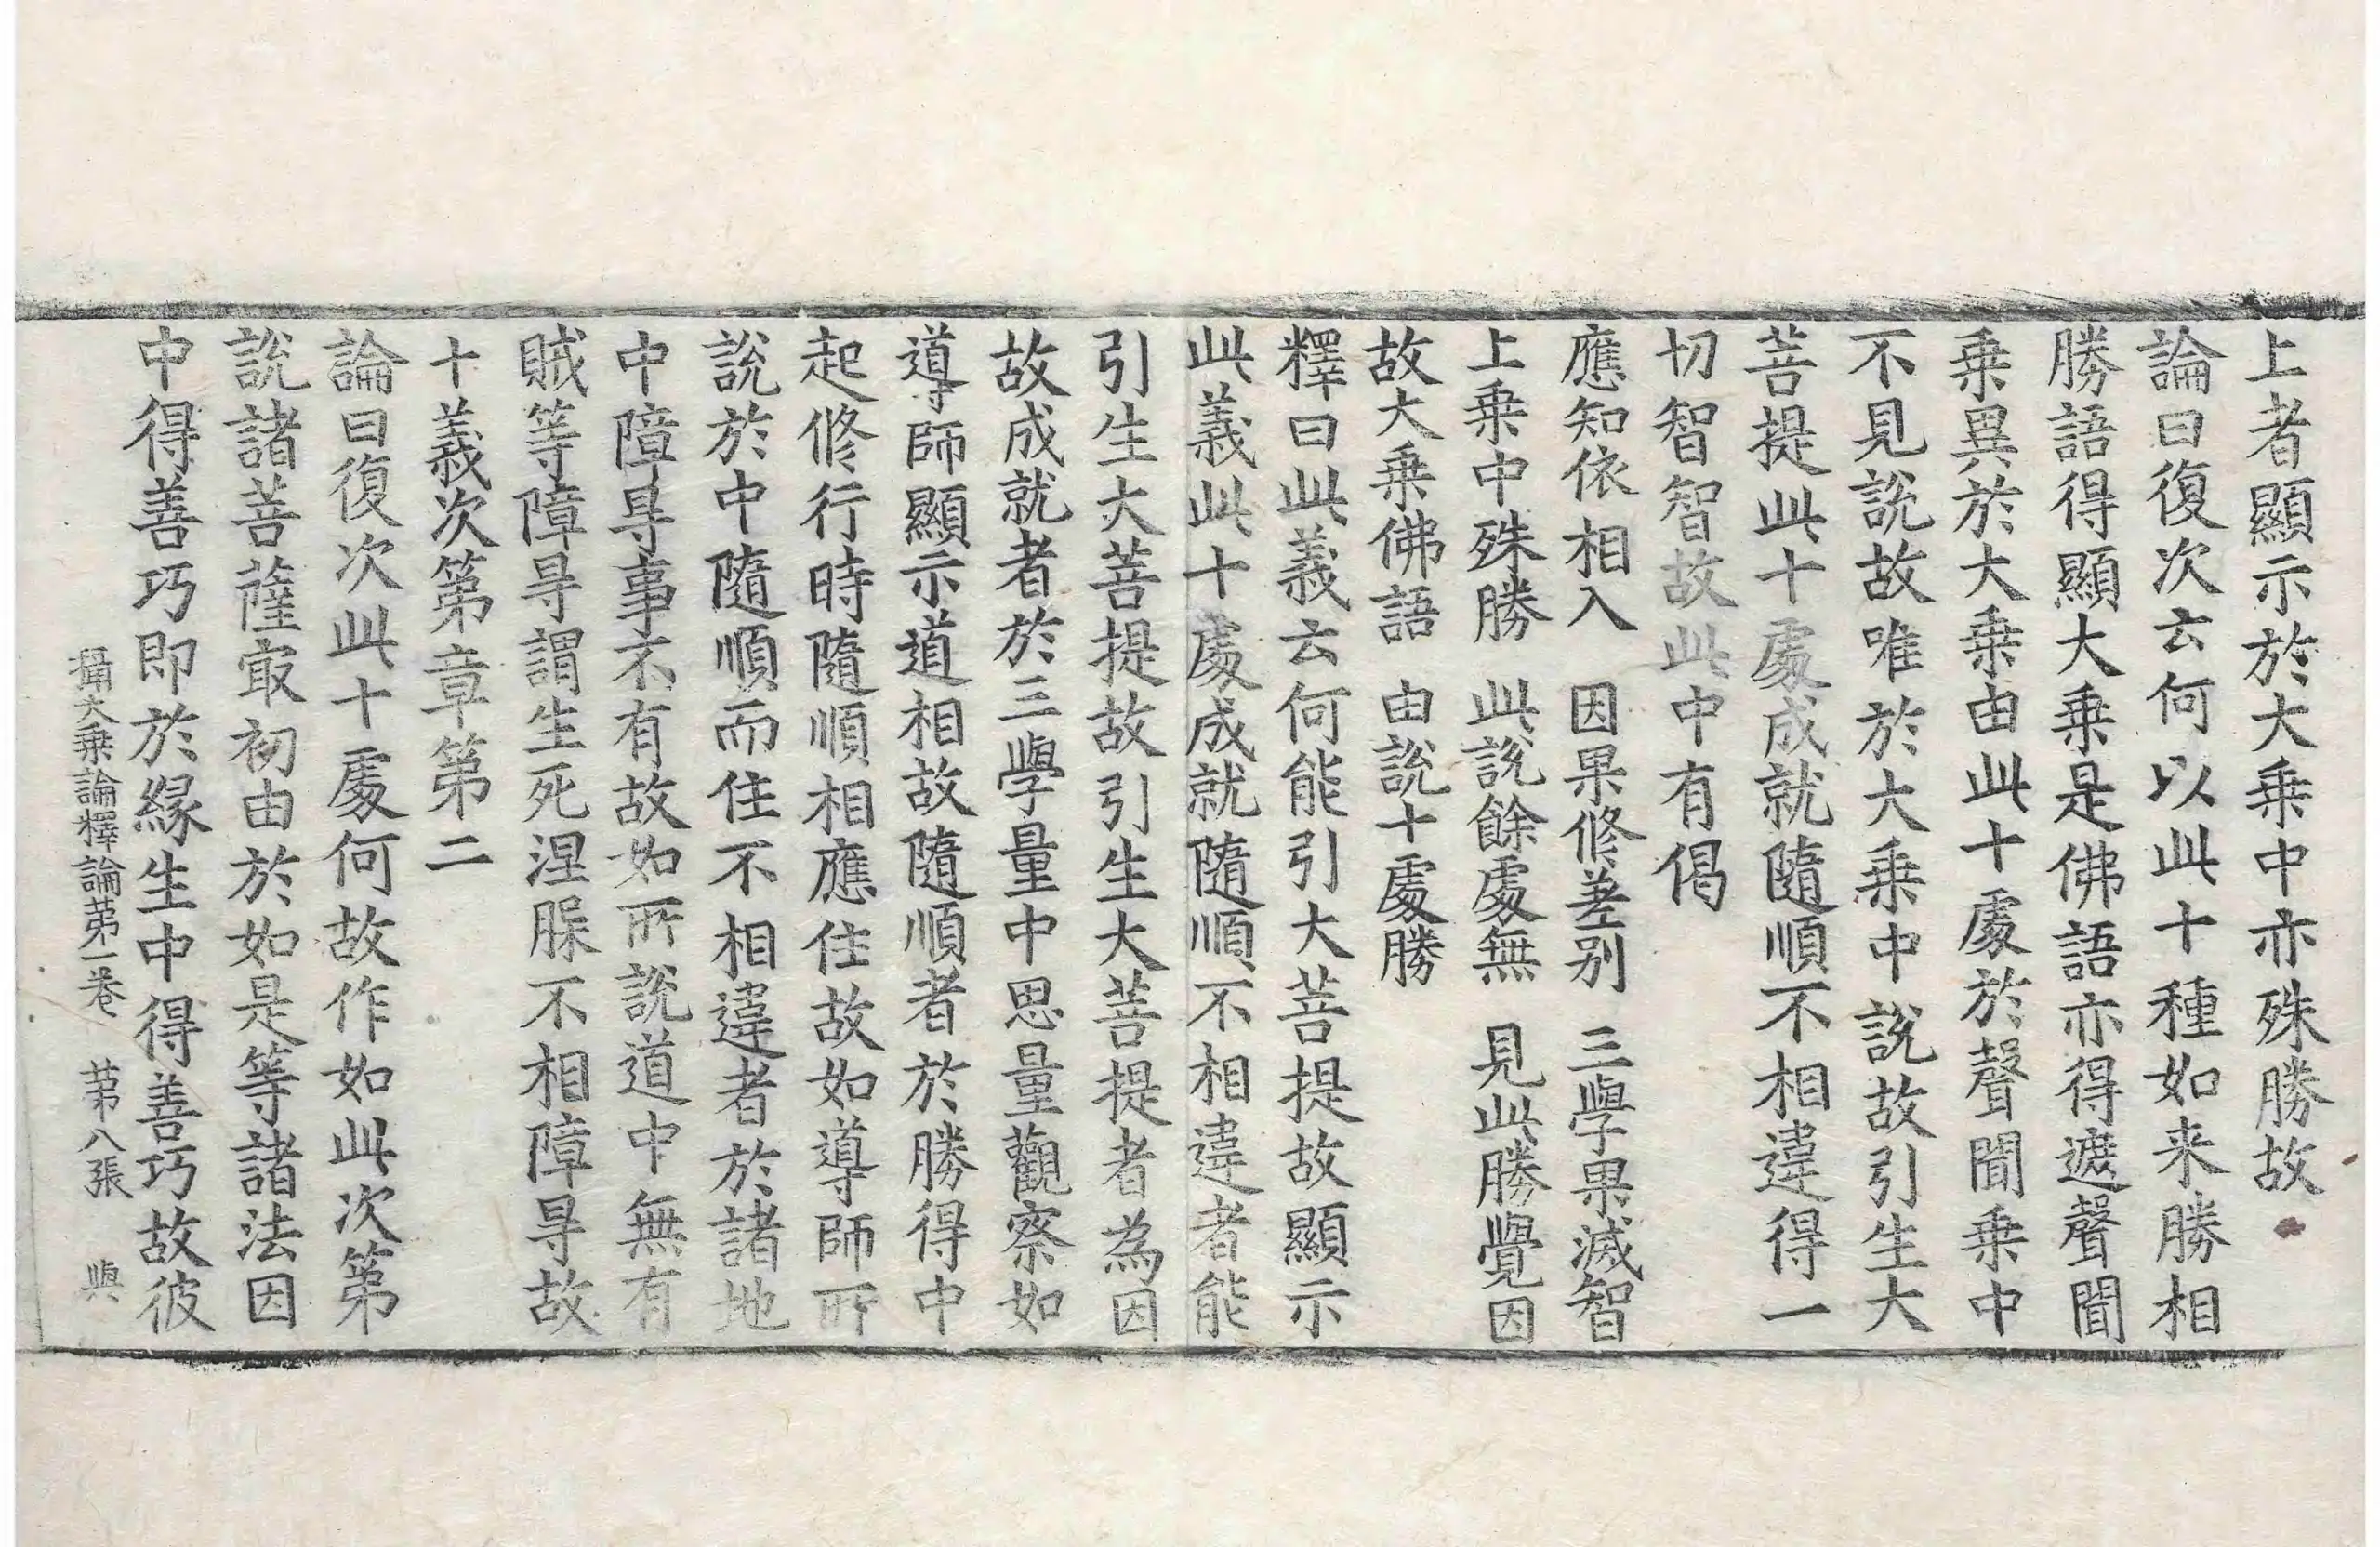 上者顯示於大乗中亦殊勝故
論曰復次云何以此十種如来勝相
勝語得顯大乗是佛語亦得遮聲聞
乗異於大乗由此十處於聲聞乗中
不見説故唯於大乗中説故引生大
菩提此十處成就隨順不相違得一
切智智故此中有偈
應知依相入　因果修差別　三學果滅智
上乗中殊勝　此説餘處無　見此勝覺因
故大乗佛語　由説十處勝
釋曰此義云何能引大菩提故顯示
此義此十處成就隨順不相違者能
引生大菩提故引生大菩提者為因
故成就者於三學量中思量觀察如
導師顯示道相故隨順者於勝得中
起修行時隨順相應住故如導師所
説於中隨順而住不相違者於諸地
中障㝵事不有故如所説道中無有
賊等障㝵謂生死涅槃不相障㝵故
十義次第章第二
論曰復次此十處何故作如此次第
説諸菩薩㝡初由於如是等諸法因
中得善巧即於緣生中得善巧故彼
攝大乗論釋論苐一卷　苐八張　與